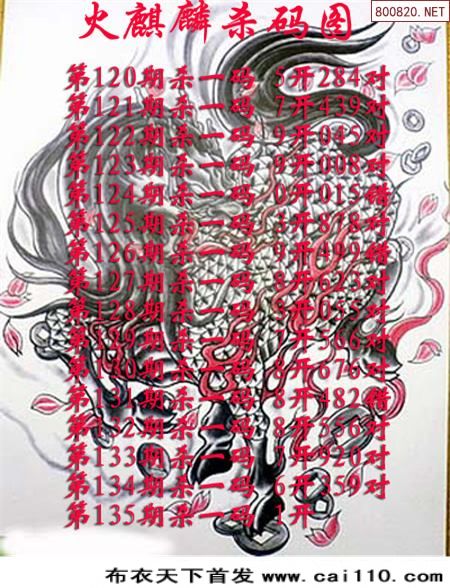 火麒麟杀码图
800820.NET
第120期杀一码 5开284对
第121期杀一码 7开439对
第122期杀一码 9开045对
第123期杀一码 9开008对
第124期杀一码 0开015错
第125期杀一码 3开878对
第126期杀一码 9开499错
第127期杀一码 8开623对
第128期杀一码 3开055对
第129期杀一码 开566对
第130期杀一码 8开676对
第131期杀一码 8开482错
第132期杀一码 8开556对
第133期杀一码 开920对
第134期杀一码 6开259对
第135期杀一码 1开
布衣天下首发 www.cai110.com